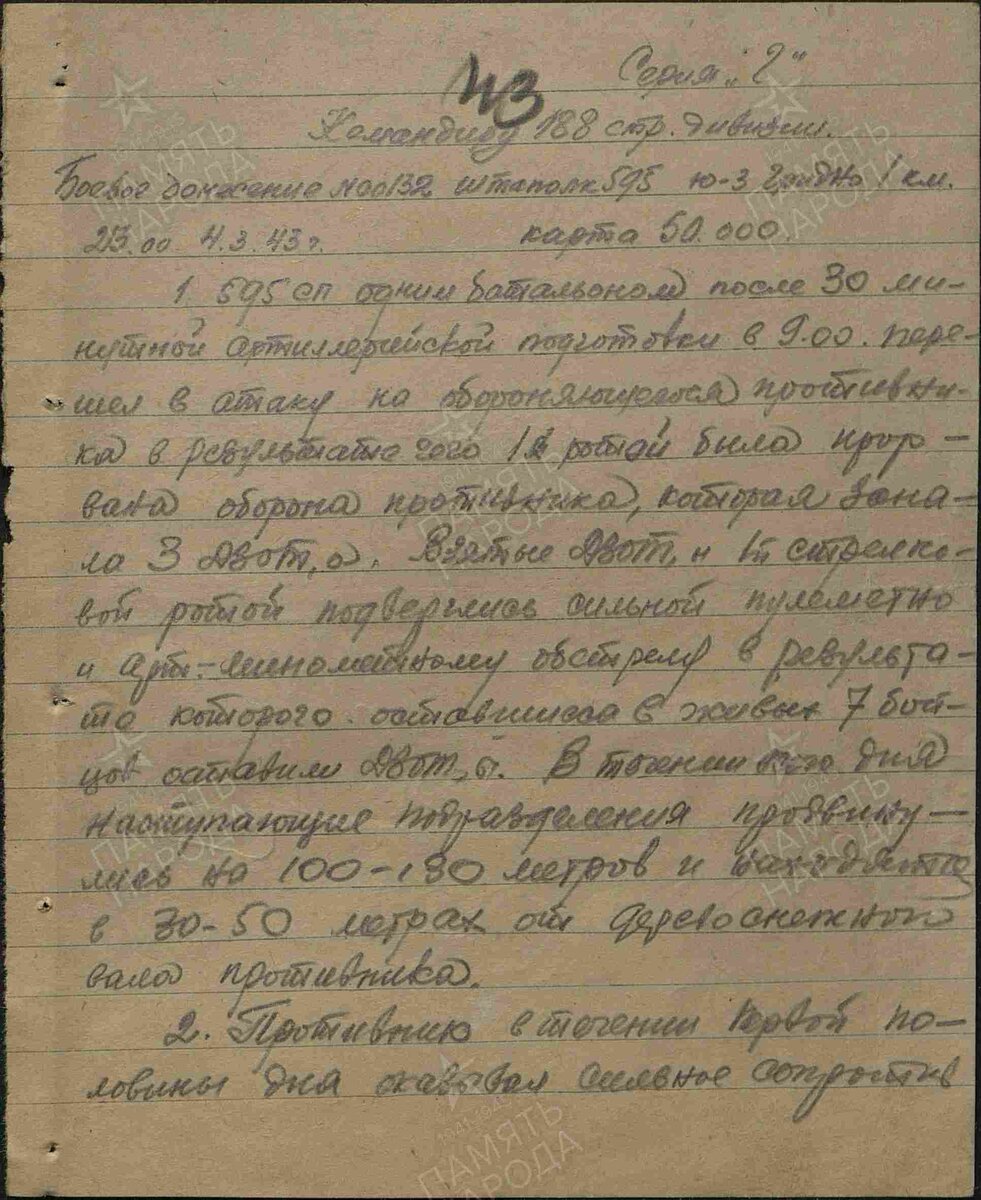 Серия „Г"
43
Командиру 188 стр. дивизии.
Боевое донесение №00132 штаполк 595 ю-з Гридно 1 км.
23.00 4.3.43 г. карта 50.000.
1. 595 сп одним батальоном после 30 ми-
нутной артиллерийской подготовки в 9.00. пере-
шел в атаку на обороняющегося противни-
ка в результате чего 1й ротой была прор-
вана оборона противника, которая заня-
ла 3 ДЗОТ,а. Взятые ДЗОТ,ы 1й стрелко-
вой ротой подверглись сильной пулеметно
и арт.-минометному обстрелу в результа-
те которого оставшиеся в живых 7 бой-
цов оставили ДЗОТ,ы. В течении дня
наступающие подразделения продвину-
лись на 100-150 метров и находятся
в 30-50 метрах от деревоснежного
вала противника.
2. Противник в течении первой по-
ловины дня оказывал сильное сопротив